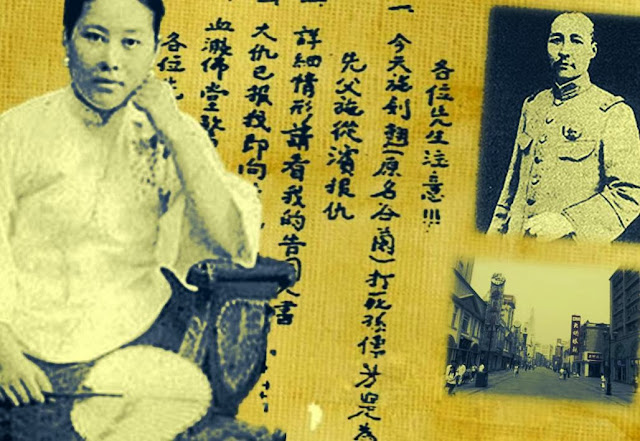 各位先生注意!!!
一、今天施剑翘(原名谷蘭)打死孫傳芳是為
先父施從濱报仇
一、詳細情形請看我的告国人書
一、大仇已报我即向
血濺佛堂驚
各位先